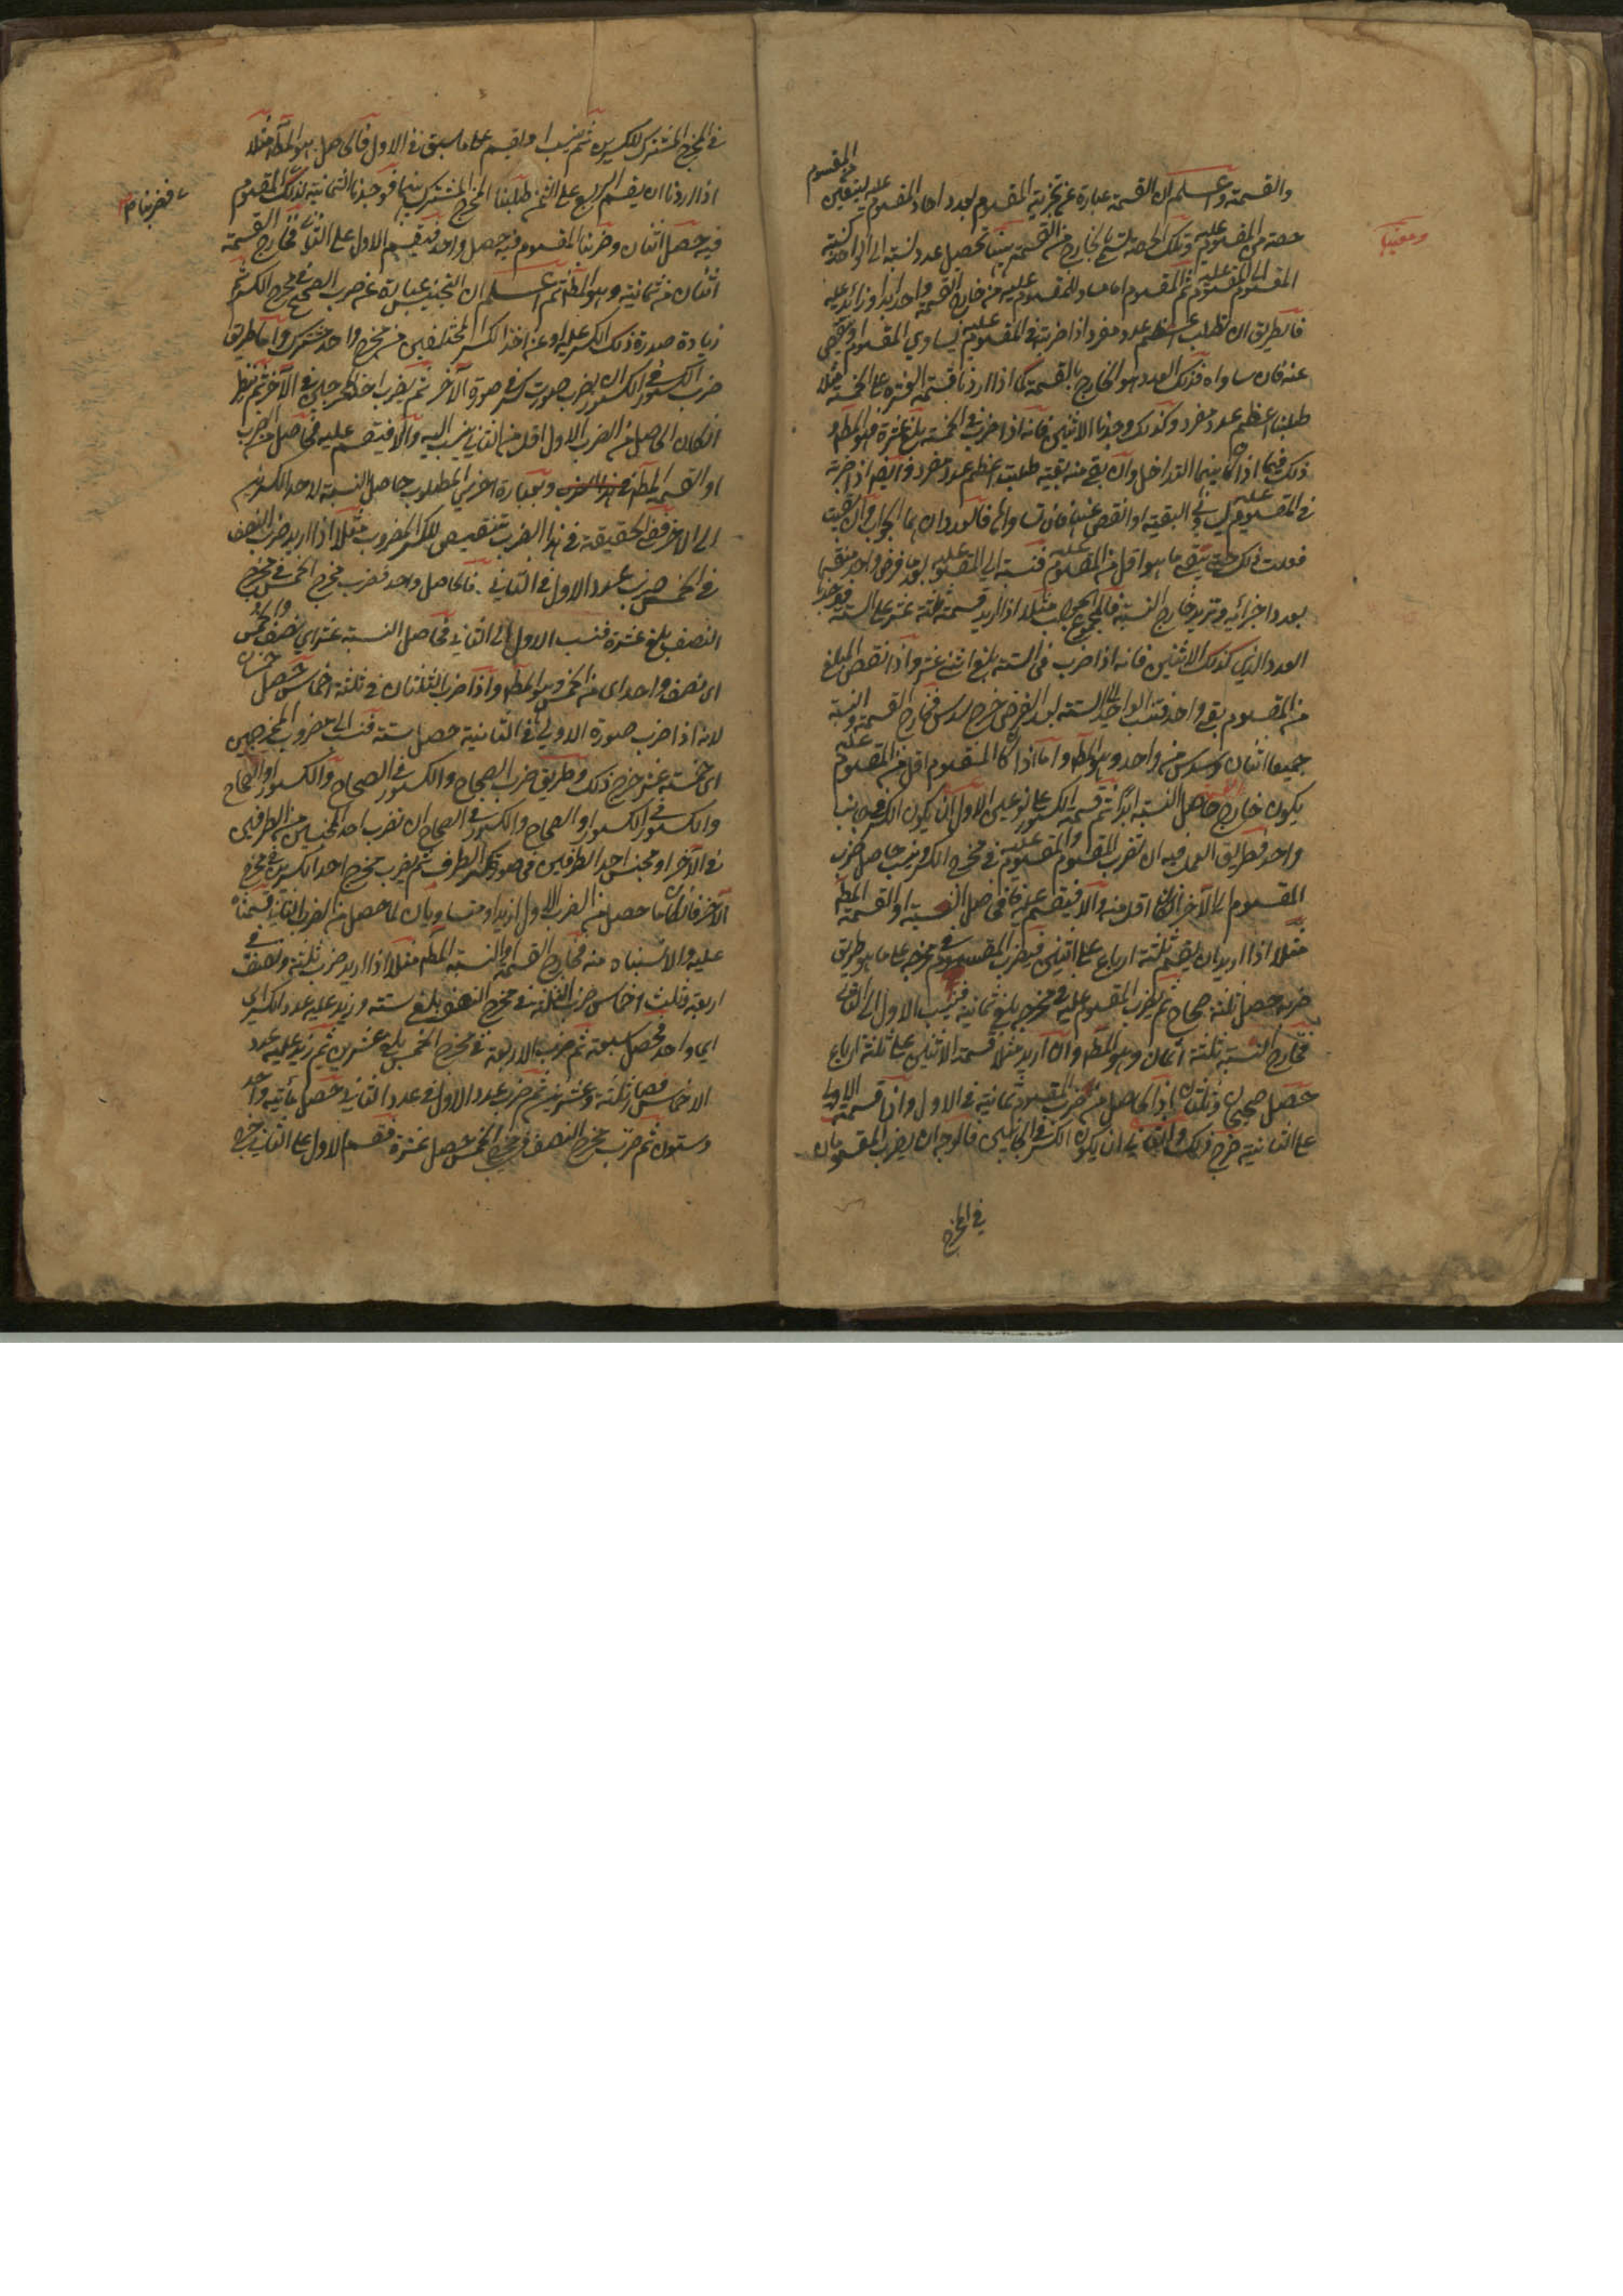 والقسمة واعلم ان القسمة عبارة عن تجزية المقسوم بعدد احاد المقسوم عليه ليتعين من المقسوم
حصة من المقسوم عليه وتلك الحصة تسمى بالخارج من القسمة تحصيل عدد نسبته الى الواحد كنسبة
المقسوم الى المقسوم عليه ثم المقسوم اما مساو للمقسوم عليه فخارج القسمة واحد ابدا او زائد عليه
فالطريق ان تطلب اعظم عدد مفرد اذا ضربته في المقسوم عليه يساوي المقسوم او ينقص
عنه فان ساواه فذلك العدد هو الخارج بالقسمة كما اذا اردنا قسمة العشرة على الخمسة مثلا
طلبنا اعظم عدد مفرد وكذلك وجدنا الاثنين فانه اذا ضرب في الخمسة بلغ عشرة فهو المط
ذلك فيما اذا كان بينهما التداخل وان بقي منه بقية طلبت اعظم عدد مفرد وايضا اذا ضربته
في المقسوم عليه يساوي البقية او انقص عنها فان ساواها فالعددان هما الجواب وان بقيت
فعلت ذلك حتى يبقى ما هو اقل من المقسوم عليه فنسبته الى المقسوم عليه بعد ما فرض واحد منقسما
بعدد اجزائه وتزيد خارج النسبة فالمجموع جواب مثلا اذا اريد قسمة ثلثة عشر على الستة فوجدنا
العدد الذي كذلك الاثنين فانه اذا ضرب في الستة بلغ اثنى عشر واذا انقص المبلغ
من المقسوم بقي واحد فنسب الواحد الى الستة بعد الفرض خرج سدس فخارج القسمة والنسبة
جميعا اثنان وسدس من واحد وهو المط واما اذا كان المقسوم اقل من المقسوم عليه
يكون خارج حاصل النسبة ابدا ثم قسمة الكسور على نوعين الاول ان يكون الكسر في جانب
واحد فطريق العمل فيه ان تضرب المقسوم والمقسوم عليه في مخرج الكسر وينسب حاصل ضرب
المقسوم الى الآخر ان كان اقل منه والا فيقسم عليه فما في حاصل النسبة او القسمة المط
مثلا اذا اريد ان يقسم ثلثة ارباع على اثنين فيضرب المقسوم في مخرجه على ما هو طريق
ضربه حصل ثلثة صحاح ثم يضرب المقسوم عليه في مخرجه بلغ ثمانية فينسب الاول الى الثاني
فخارج النسبة ثلثة اثمان وهو المط وان اريد مثلا قسمة الاثنين على ثلثة ارباع
حصل صحيحان وثلثان اذ الحاصل من ضرب المقسوم ثمانية في الاول واذا قسمت الاولى
على الثانية خرج ذلك والثاني ان يكون الكسر في الجانبين فالوجه ان يضرب المقسومان
في المخرج
في المخرج المشترك للكسرين ثم ينسب او يقسم على ما سبق في الاول فالحاصل هو المط مثلا
اذا اردنا ان يقسم الربع على الثمن طلبنا المخرج المشترك بينهما فوجدنا الثمانية لذلك المقسوم
فضربنا
فيه حصل اثنان وضربنا المقسوم فيه حصل واحد فيقسم الاول على الثاني فخارج القسمة
اثنان من ثمانية وهو المط ثم اعلم ان التجنيس عبارة عن ضرب الصحيح في مخرج الكسر ثم
زيادة صورة ذلك الكسر عليه او عن اخذ الكسر المختلفين من مخرج واحد مشترك واما طريق
ضرب الكسور في الكسور ان يضرب صورة كسر في صورة الآخر ثم يضرب احد المخرجين في الآخر ثم ينظر
ان كان الحاصل من الضرب الاول اقل من الثاني ينسب اليه والا فيقسم عليه فحاصل الضرب
او القسمة المط وبعبارة اخرى المطلوب حاصل النسبة لاحد الكسرين
الى الآخر ففي الحقيقة في هذا الضرب تنقيص للكسر المضروب مثلا اذا اريد ضرب النصف
في الخمس ضرب عدد الاول في الثاني فالحاصل واحد فضرب مخرج الخمس في مخرج
النصف بلغ عشرة فنسب الاول الى الثاني فحاصل النسبة عشر اي نصف خمس واحد
اي نصف واحد اي من الخمس وهو المط واذا ضرب الثلثان في ثلثة اخماس حصل خمسان
لانه اذا ضرب صورة الاولى في الثانية حصل ستة فنسب الى مضروب المخرجين
اي خمسة عشر خرج ذلك وطريق ضرب الصحاح والكسور في الصحاح والكسور او الصحاح
والكسور في الكسور او الصحاح والكسور في الصحاح ان تضرب احد المجنسين من الطرفين
في الآخر او مجنس احد الطرفين في صورة كسر الطرف ثم يضرب مخرج احد الكسرين في مخرج
الآخر فان كان ما حصل من الضرب الاول ازيد او متساويان لما حصل من الضرب الثاني قسمناه
عليه والا نسبناه منه فخارج القسمة او النسبة المط مثلا اذا اريد ضرب ثلثة ونصف في
اربعة وثلث اخماس ضرب الثلثة في مخرج النصف بلغ ستة وزيد عليه عدد الكسر
اي واحد فحصل سبعة ثم ضرب الاربعة في مخرج الخمس بلغ عشرين ثم زيد عليه عدد
الاخماس فصار ثلثة وعشرين ثم ضرب عدد الاول في عدد الثاني حصل مائة واحد
وستون ثم ضرب مخرج النصف في مخرج الخمس حصل عشرة فقسم الاول على الثاني خرج